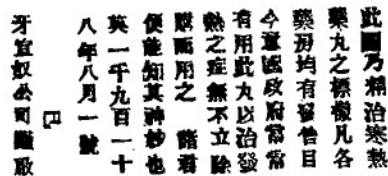 此圖乃精治寒熱
藥丸之標樣凡各
藥房均有發售目
今意國政府當常
有用此丸以治發
熱之症無不立除
購而用之　諸君
便能知其神妙也
英一千九百一十
八年八月一號
巳
牙宜奴公司謹啟